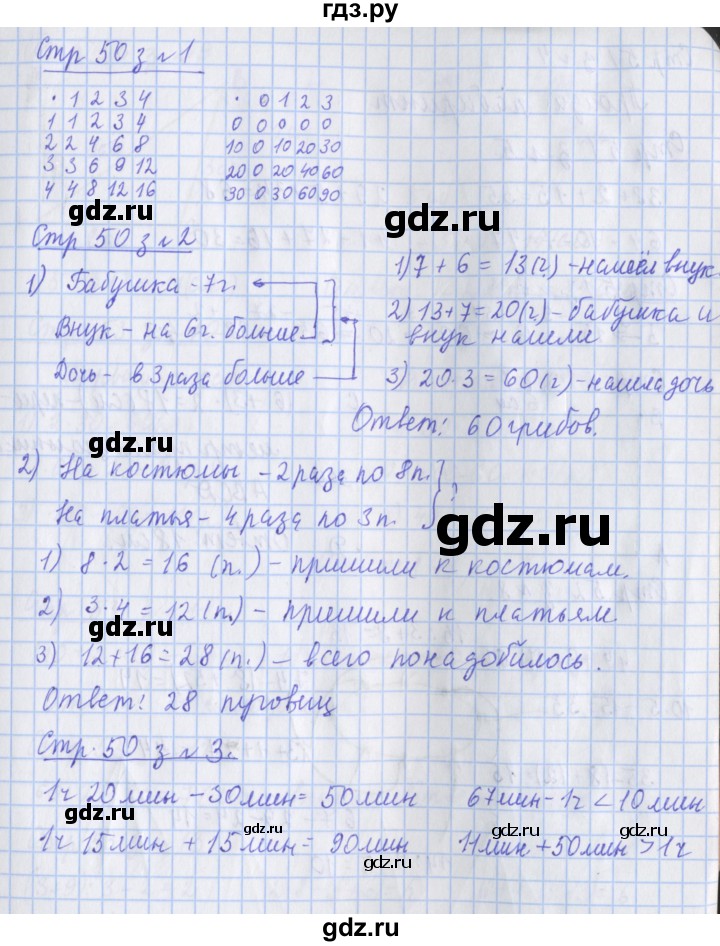 гдз.ру
Стр 50 з №1
· 1 2 3 4
1 1 2 3 4
2 2 4 6 8
3 3 6 9 12
4 4 8 12 16
· 0 1 2 3
0 0 0 0 0
10 0 10 20 30
20 0 20 40 60
30 0 30 60 90
gdz.ru
gdz.ru
Стр 50 з №2
1) Бабушка - 7г.
Внук - на 6г. больше
Дочь - в 3 раза больше
1) 7 + 6 = 13(г) - нашёл внук
2) 13+7=20(г) - бабушка и
внук нашли
3) 20·3 = 60(г) - нашла дочь
Ответ: 60 грибов.
gdz.ru
2) На костюмы - 2 раза по 8п. ?
На платья - 4 раза по 3п.
gdz.ru
1) 8·2 = 16 (п.) - пришили к костюмам.
2) 3·4 = 12 (п.) - пришили к платьям
gdz.ru
3) 12+16=28(п.) - всего понадобилось.
Ответ: 28 пуговиц
Стр. 50 з №3.
gdz.ru
1ч 20мин - 30мин = 50мин
67мин - 1ч < 10мин
gdz.ru
1ч 15мин + 15мин = 90мин
11мин + 50мин > 1ч
gdz.ru
gdz.ru
gdz.ru